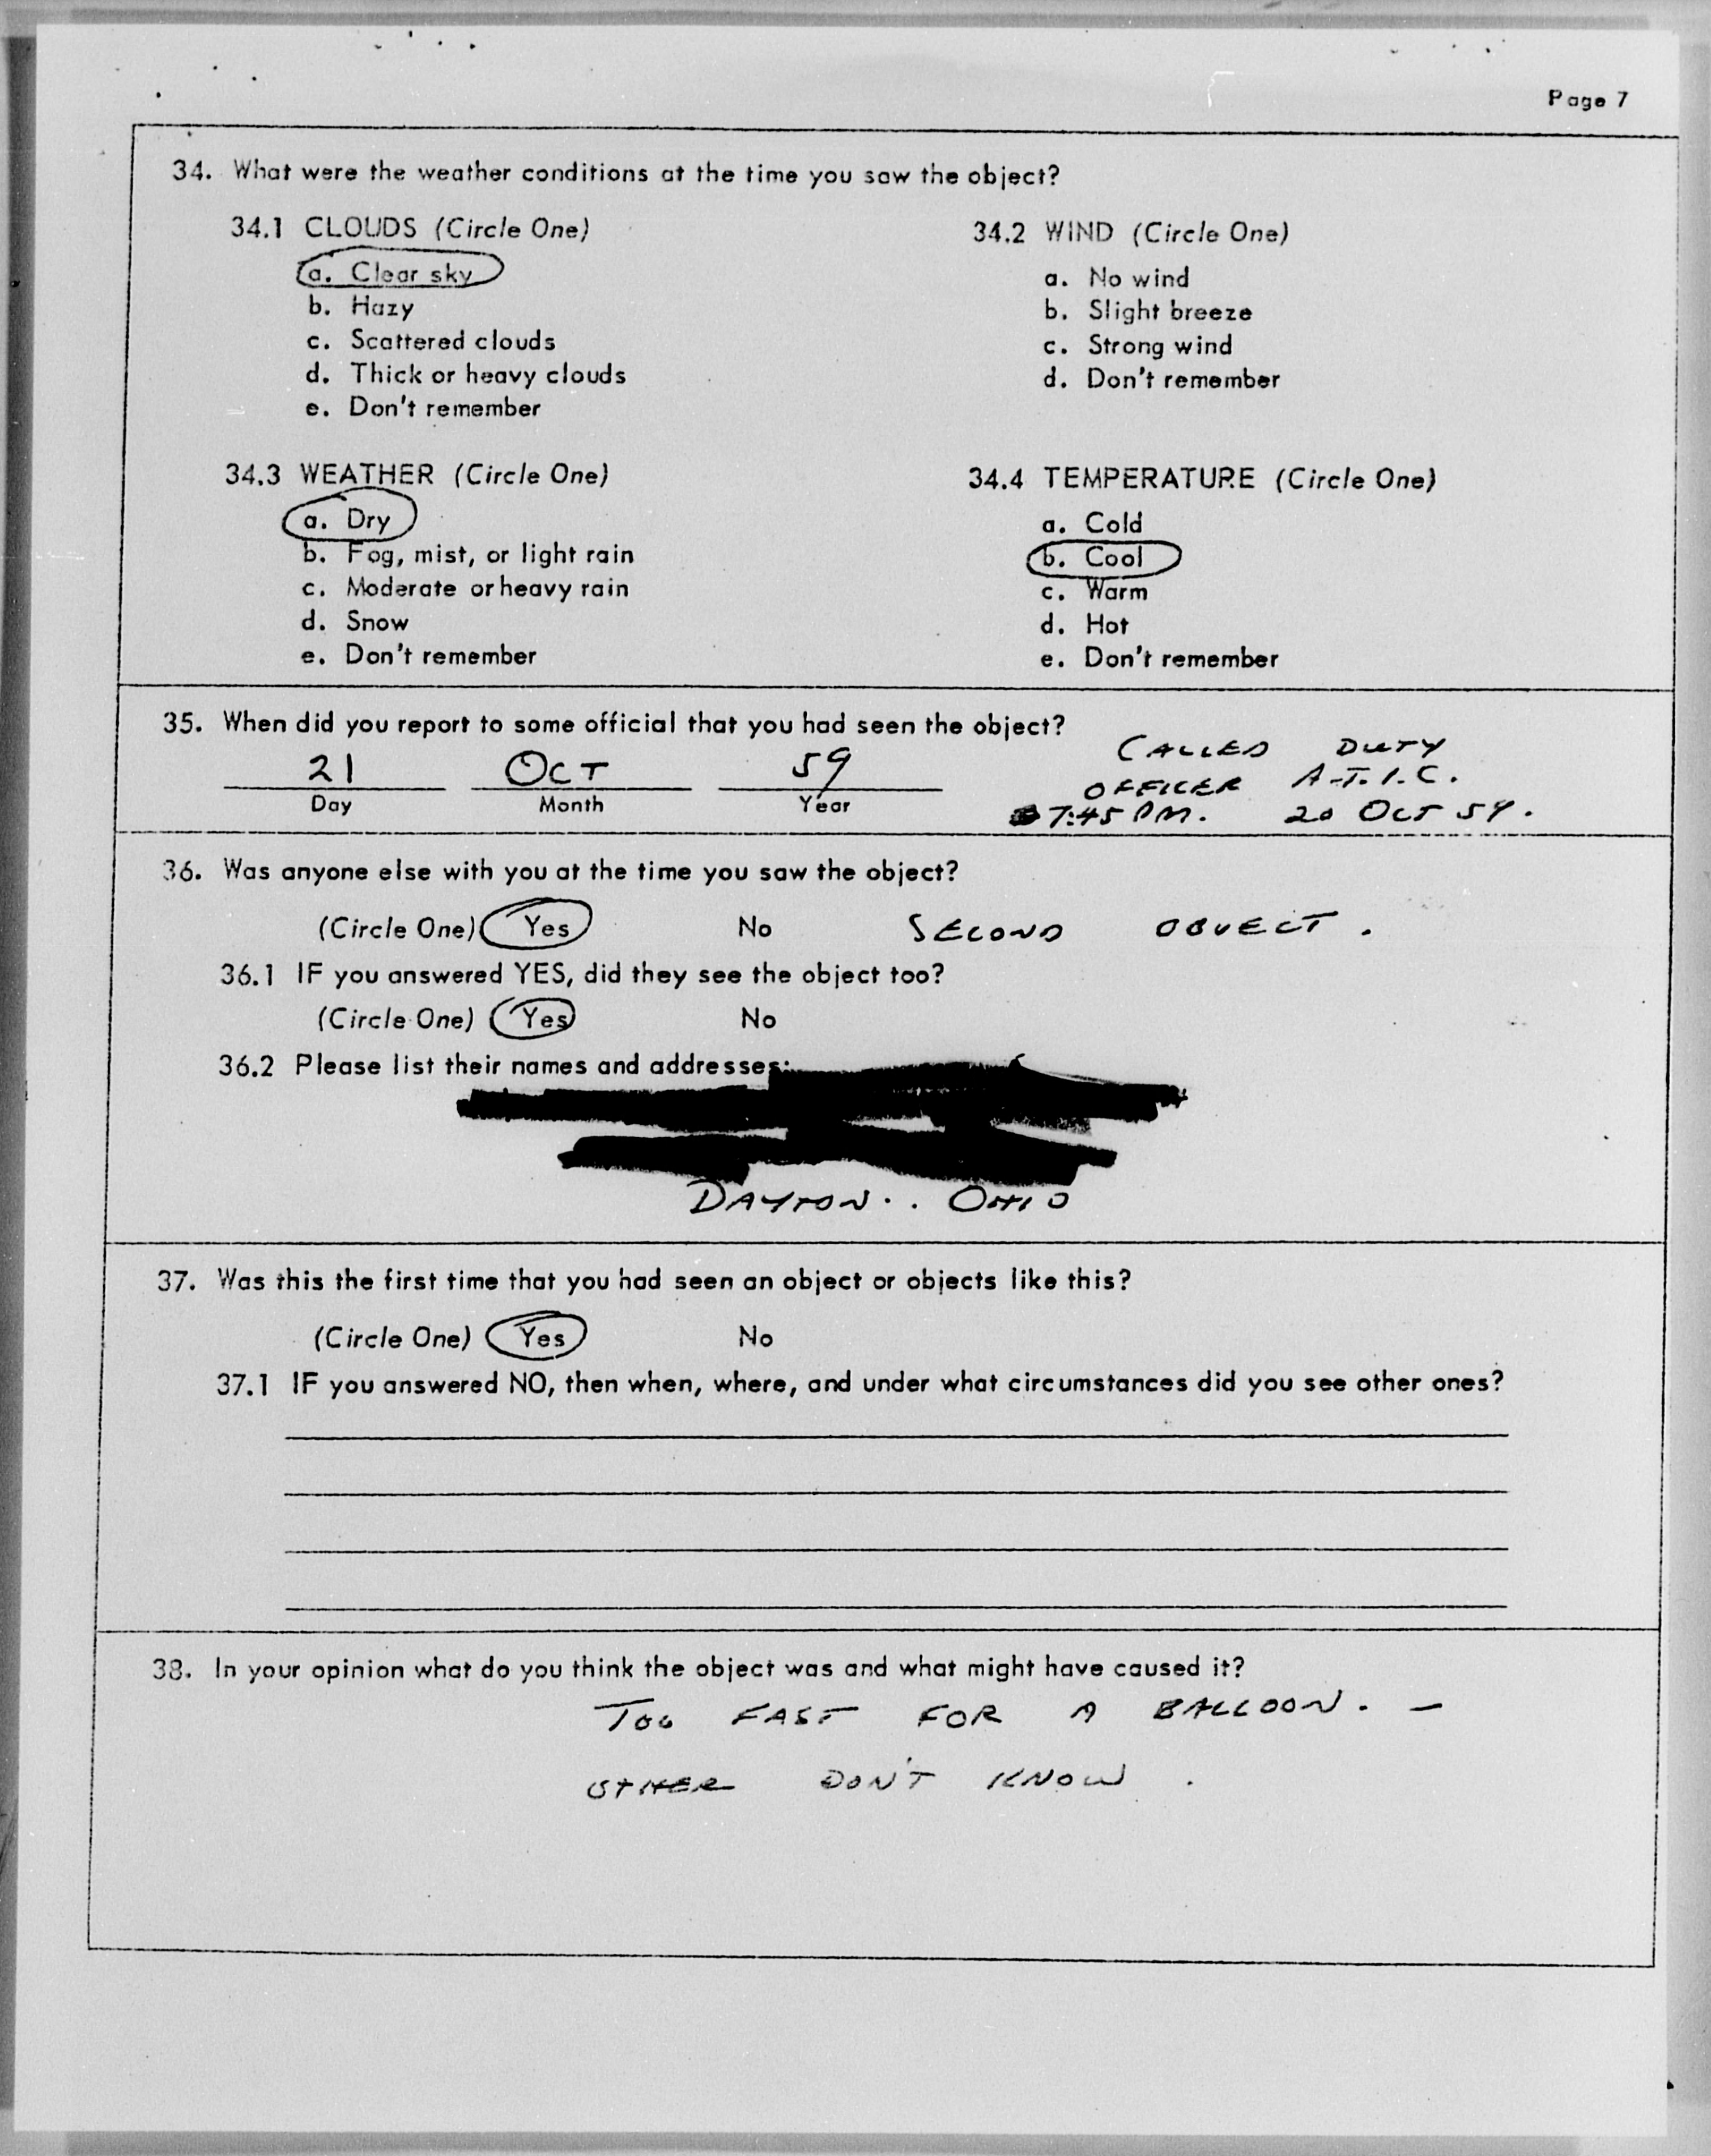 Page 7
34. What were the weather conditions at the time you saw the object?
34.1 CLOUDS (Circle One)
a. Clear sky
b. Hazy
c. Scattered clouds
d. Thick or heavy clouds
e. Don't remember
34.2 WIND (Circle One)
a. No wind
b. Slight breeze
c. Strong wind
d. Don't remember
34.3 WEATHER (Circle One)
a. Dry
b. Fog, mist, or light rain
c. Moderate or heavy rain
d. Snow
e. Don't remember
34.4 TEMPERATURE (Circle One)
a. Cold
b. Cool
c. Warm
d. Hot
e. Don't remember
35. When did you report to some official that you had seen the object?
21 OCT 59
Day Month Year
CALLED DUTY
OFFICER A.T.I.C.
7:45 PM. 20 OCT 59.
36. Was anyone else with you at the time you saw the object?
(Circle One) Yes No SECOND OBJECT.
36.1 IF you answered YES, did they see the object too?
(Circle One) Yes No
36.2 Please list their names and addresses:
DAYTON.. OHIO
37. Was this the first time that you had seen an object or objects like this?
(Circle One) Yes No
37.1 IF you answered NO, then when, where, and under what circumstances did you see other ones?
38. In your opinion what do you think the object was and what might have caused it?
TOO FAST FOR A BALLOON. –
OTHER DON'T KNOW.